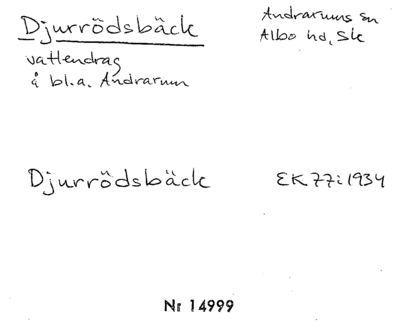 Djurrödsbäck
Andrarums sn
Albo hd, Sk
vattendrag
å bl.a. Andrarum
Djurrödsbäck
EK 77i 1934
Nr 14999